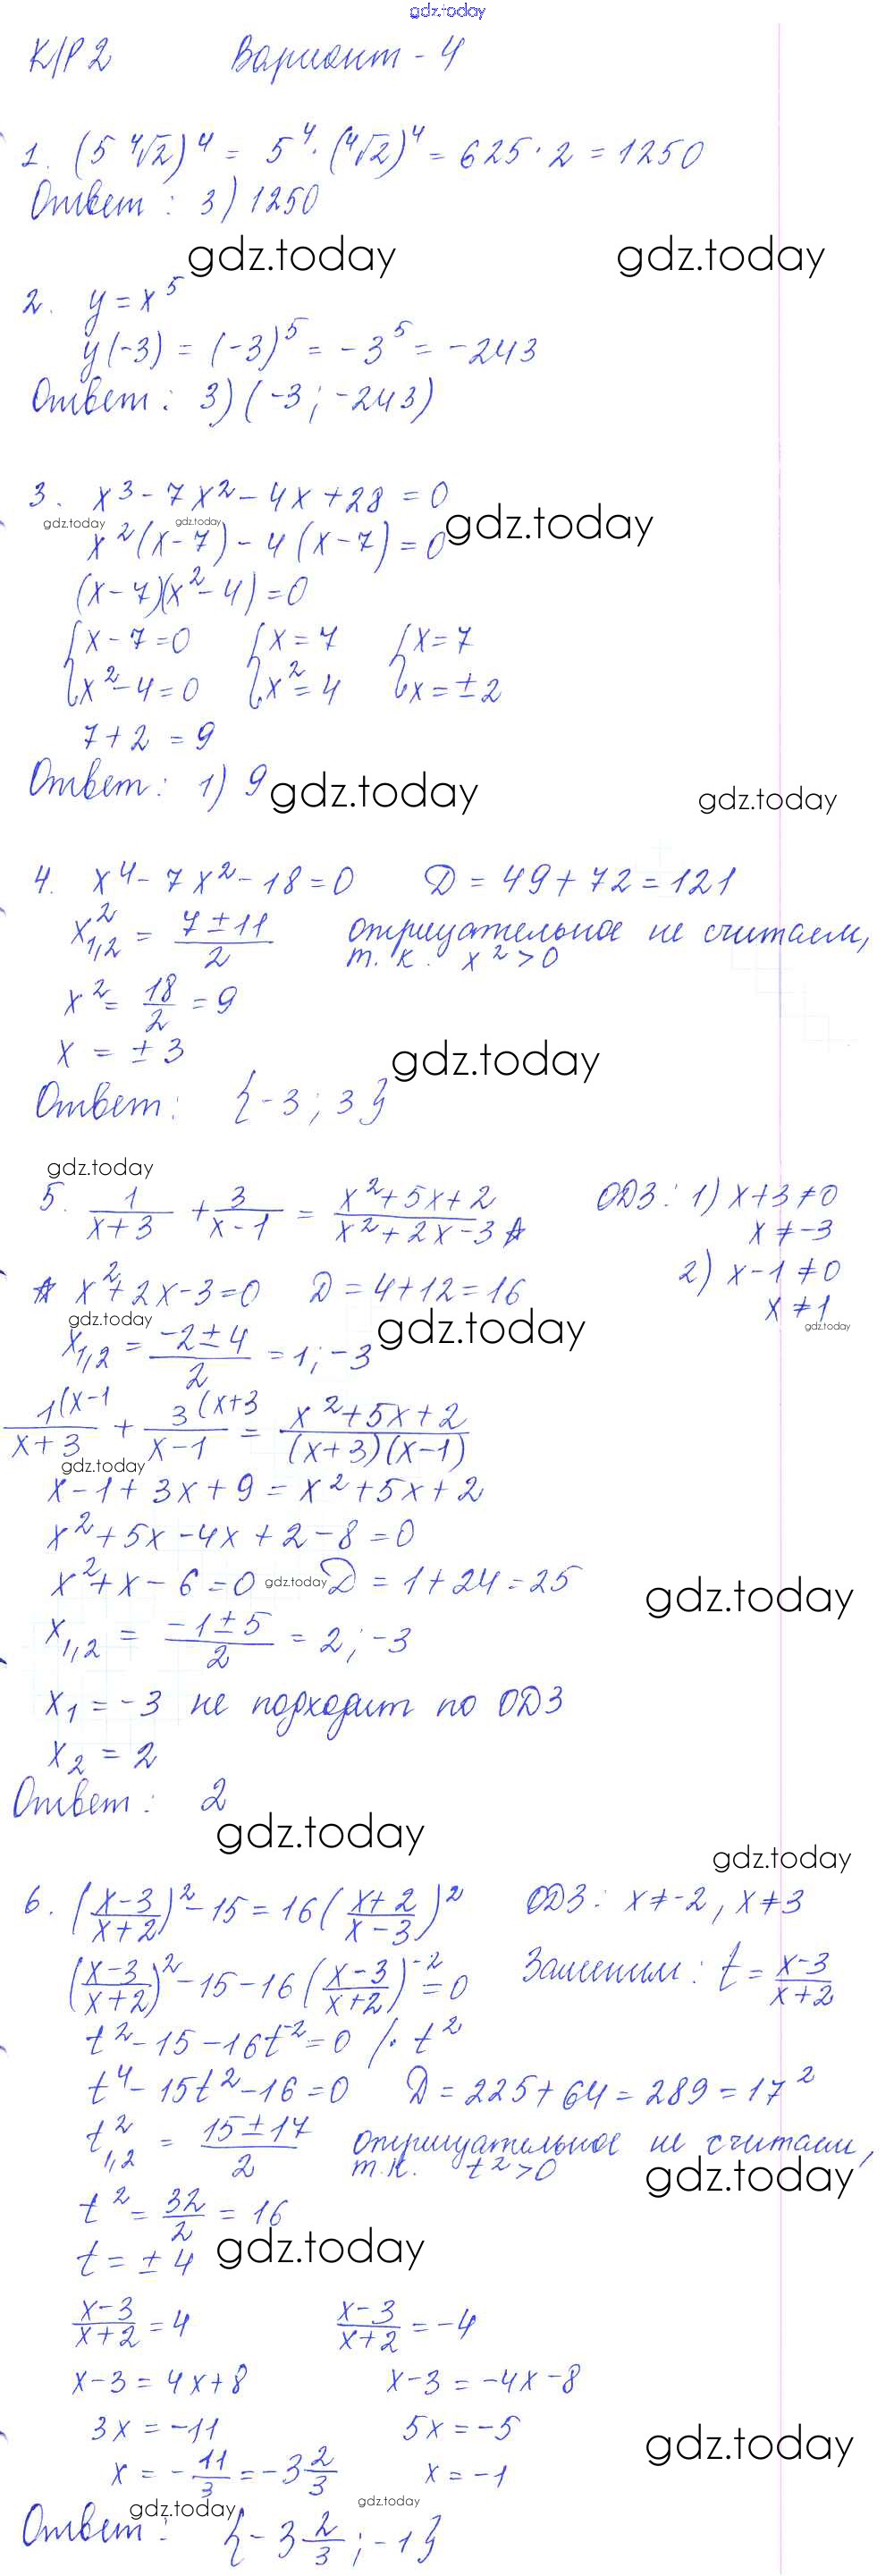 gdz.today
К/Р 2 Вариант - 4
1. (5 ⁴√2)⁴ = 5⁴ · (⁴√2)⁴ = 625 · 2 = 1250
Ответ : 3) 1250
gdz.today gdz.today
2. y = x⁵
y(-3) = (-3)⁵ = -3⁵ = -243
Ответ : 3) (-3 ; -243)
3. x³ - 7x² - 4x + 28 = 0
gdz.today gdz.today gdz.today
x²(x-7) - 4(x-7) = 0
(x-7)(x²-4) = 0
{x-7=0 {x=7 {x=7
{x²-4=0 {x²=4 {x=±2
7+2 = 9
Ответ : 1) 9
gdz.today gdz.today
4. x⁴ - 7x² - 18 = 0 D = 49 + 72 = 121
x²₁,₂ = (7±11)/2 отрицательное не считаем,
т. к. x² > 0
x² = 18/2 = 9
x = ±3
gdz.today
Ответ : {-3 ; 3}
gdz.today
5. 1/(x+3) + 3/(x-1) = (x²+5x+2)/(x²+2x-3) ☆ ОДЗ : 1) x+3≠0
x ≠ -3
☆ x²+2x-3=0 D = 4+12 = 16 2) x-1≠0
x ≠ 1
gdz.today gdz.today gdz.today
x₁,₂ = (-2±4)/2 = 1 ; -3
1(x-1/(x+3) + 3(x+3/(x-1) = (x²+5x+2)/((x+3)(x-1))
gdz.today
x-1+3x+9 = x²+5x+2
x²+5x-4x+2-8=0
x²+x-6=0 gdz.today D = 1+24=25
gdz.today
x₁,₂ = (-1±5)/2 = 2 ; -3
x₁ = -3 не подходит по ОДЗ
x₂ = 2
Ответ : 2
gdz.today gdz.today
6. ((x-3)/(x+2))² - 15 = 16((x+2)/(x-3))² ОДЗ : x≠-2, x≠3
((x-3)/(x+2))² - 15 - 16((x-3)/(x+2))⁻² = 0 Заменим : t = (x-3)/(x+2)
t² - 15 - 16t⁻² = 0 / · t²
t⁴ - 15t² - 16 = 0 D = 225+64 = 289 = 17²
t²₁,₂ = (15±17)/2 отрицательное не считаем,
т.к. t² > 0
gdz.today
t² = 32/2 = 16
t = ±4 gdz.today
(x-3)/(x+2) = 4 (x-3)/(x+2) = -4
x-3 = 4x+8 x-3 = -4x-8
3x = -11 5x = -5
gdz.today
x = -11/3 = -3 2/3 x = -1
gdz.today gdz.today
Ответ : {-3 2/3 ; -1}